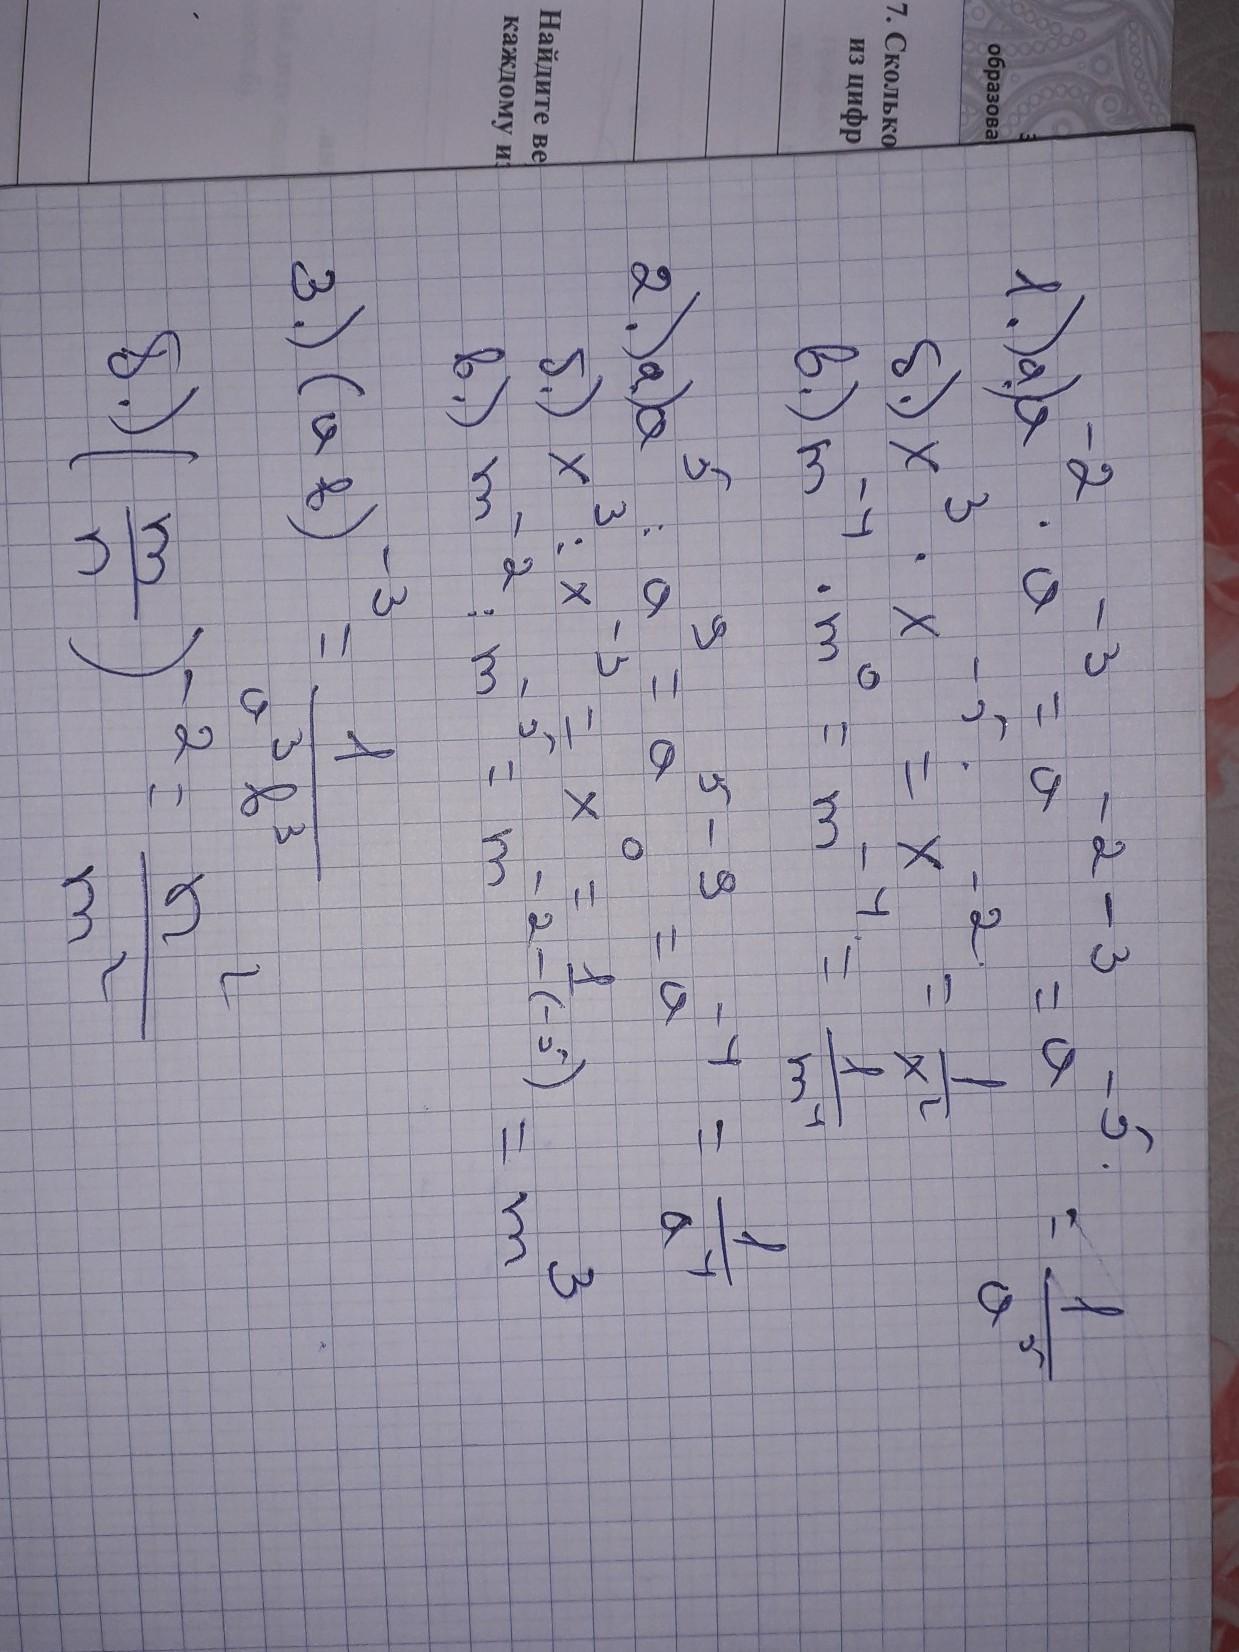 образова
7. Сколько
из цифр
Найдите ве
каждому и
1.) а.) a^-2 · a^-3 = a^-2-3 = a^-5. = 1/a^5
б.) x^3 · x^-5. = x^-2. = 1/x^2
в.) m^-4 · m^0 = m^-4 = 1/m^4
2.) а.) a^5 : a^9 = a^5-9 = a^-4 = 1/a^4
б.) x^3 : x^-3 = x^0 = 1
в.) m^-2 : m^-5 = m^-2-(-5) = m^3
3.) (ab)^-3 = 1/a^3b^3
б.) (m/n)^-2 = n^2/m^2